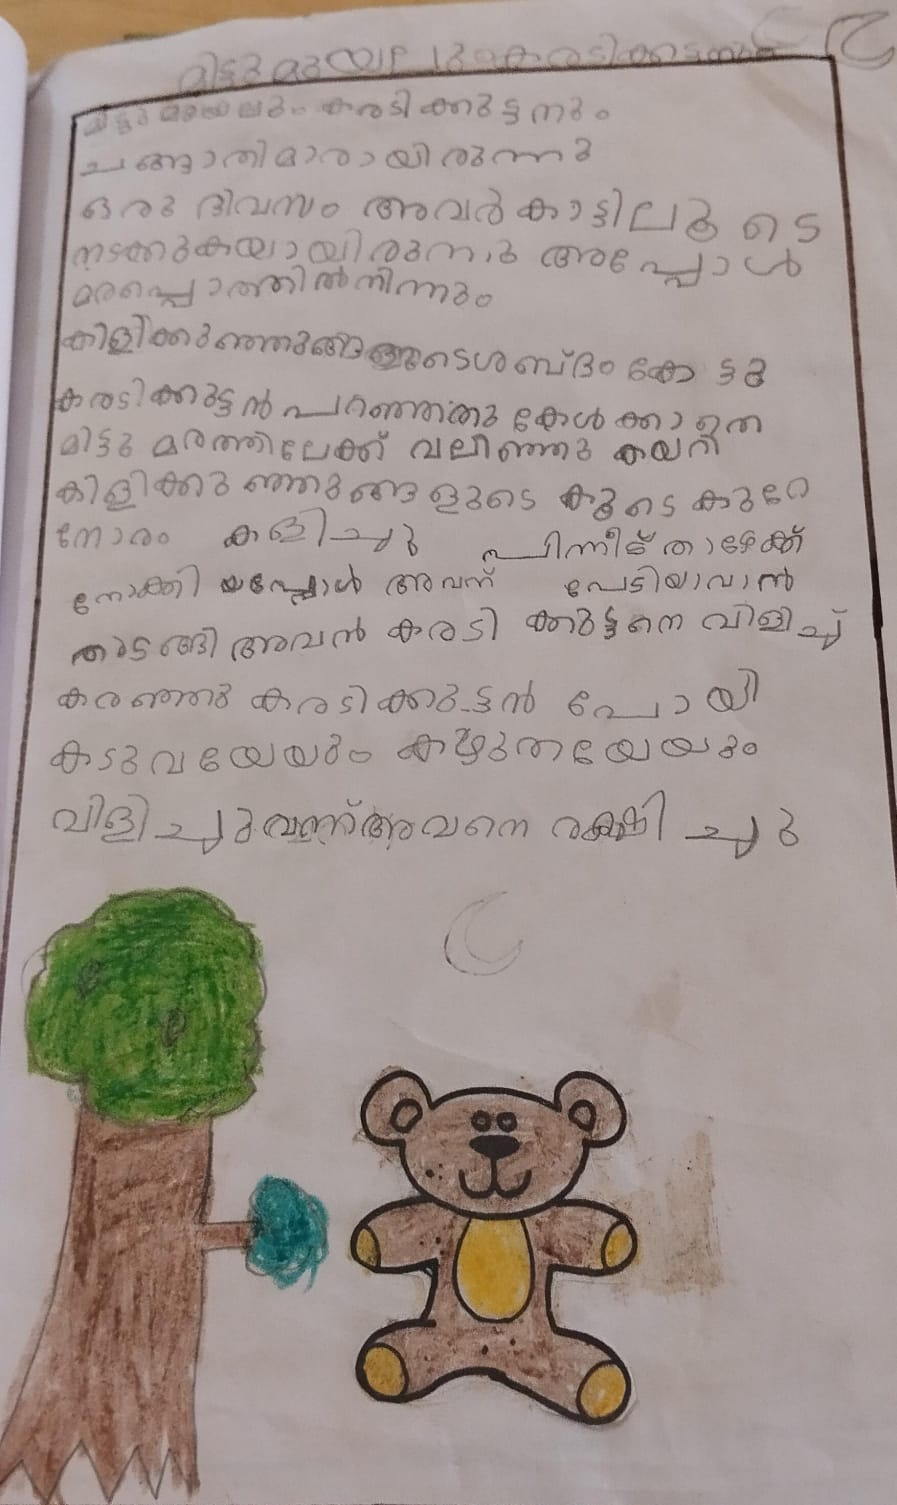 മിട്ടുമുയലും കരടിക്കുട്ടനും
മിട്ടുമുയലും കരടിക്കുട്ടനും
ചങ്ങാതിമാരായിരുന്നു
ഒരു ദിവസം അവർ കാട്ടിലൂടെ
നടക്കുകയായിരുന്നു അപ്പോൾ
മരപ്പൊത്തിൽനിന്നും
കിളിക്കുഞ്ഞുങ്ങളുടെശബ്ദം കേട്ടു
കരടിക്കുട്ടൻ പറഞ്ഞതു കേൾക്കാതെ
മിട്ടു മരത്തിലേക്ക് വലിഞ്ഞു കയറി
കിളിക്കുഞ്ഞുങ്ങളുടെ കൂടെ കുറേ
നോരം കളിച്ചു പിന്നീട് താഴേക്ക്
നോക്കിയപ്പോൾ അവന് പേടിയാവാൻ
തുടങ്ങി അവൻ കരടിക്കുട്ടനെ വിളിച്ച്
കരഞ്ഞു കരടിക്കുട്ടൻ പോയി
കടുവയേയും കഴുതയേയും
വിളിച്ചുവന്ന് അവനെ രക്ഷിച്ചു